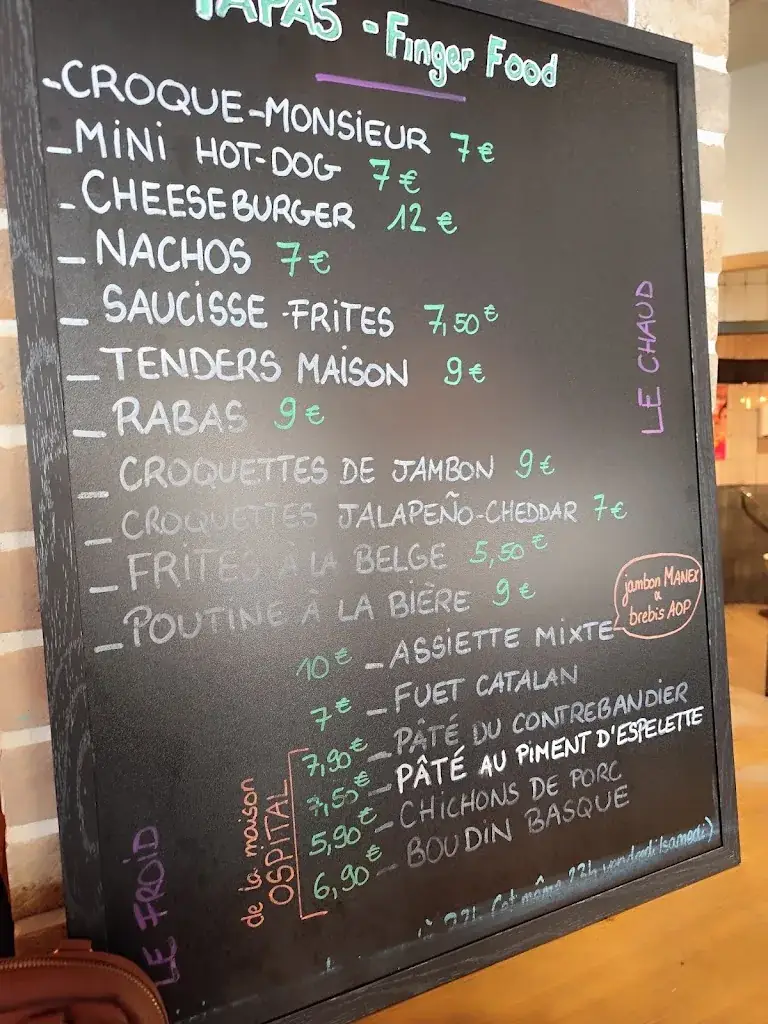 TAPAS - Finger Food
- CROQUE-MONSIEUR 7€
- MINI HOT-DOG 7€
- CHEESEBURGER 12€
- NACHOS 7€
- SAUCISSE-FRITES 7,50€
- TENDERS MAISON 9€
- RABAS 9€
- CROQUETTES DE JAMBON 9€
- CROQUETTES JALAPEÑO-CHEDDAR 7€
- FRITES À LA BELGE 5,50€
- POUTINE À LA BIÈRE 9€
LE CHAUD
10€ - ASSIETTE MIXTE
jambon MANEX
&
brebis AOP
7€ - FUET CATALAN
7,90€ - PÂTÉ DU CONTREBANDIER
7,55€ - PÂTÉ AU PIMENT D'ESPELETTE
5,90€ - CHICHONS DE PORC
6,90€ - BOUDIN BASQUE
de la maison
OSPITAL
LE FROID
22h (et même 23h vendredi/samedi)